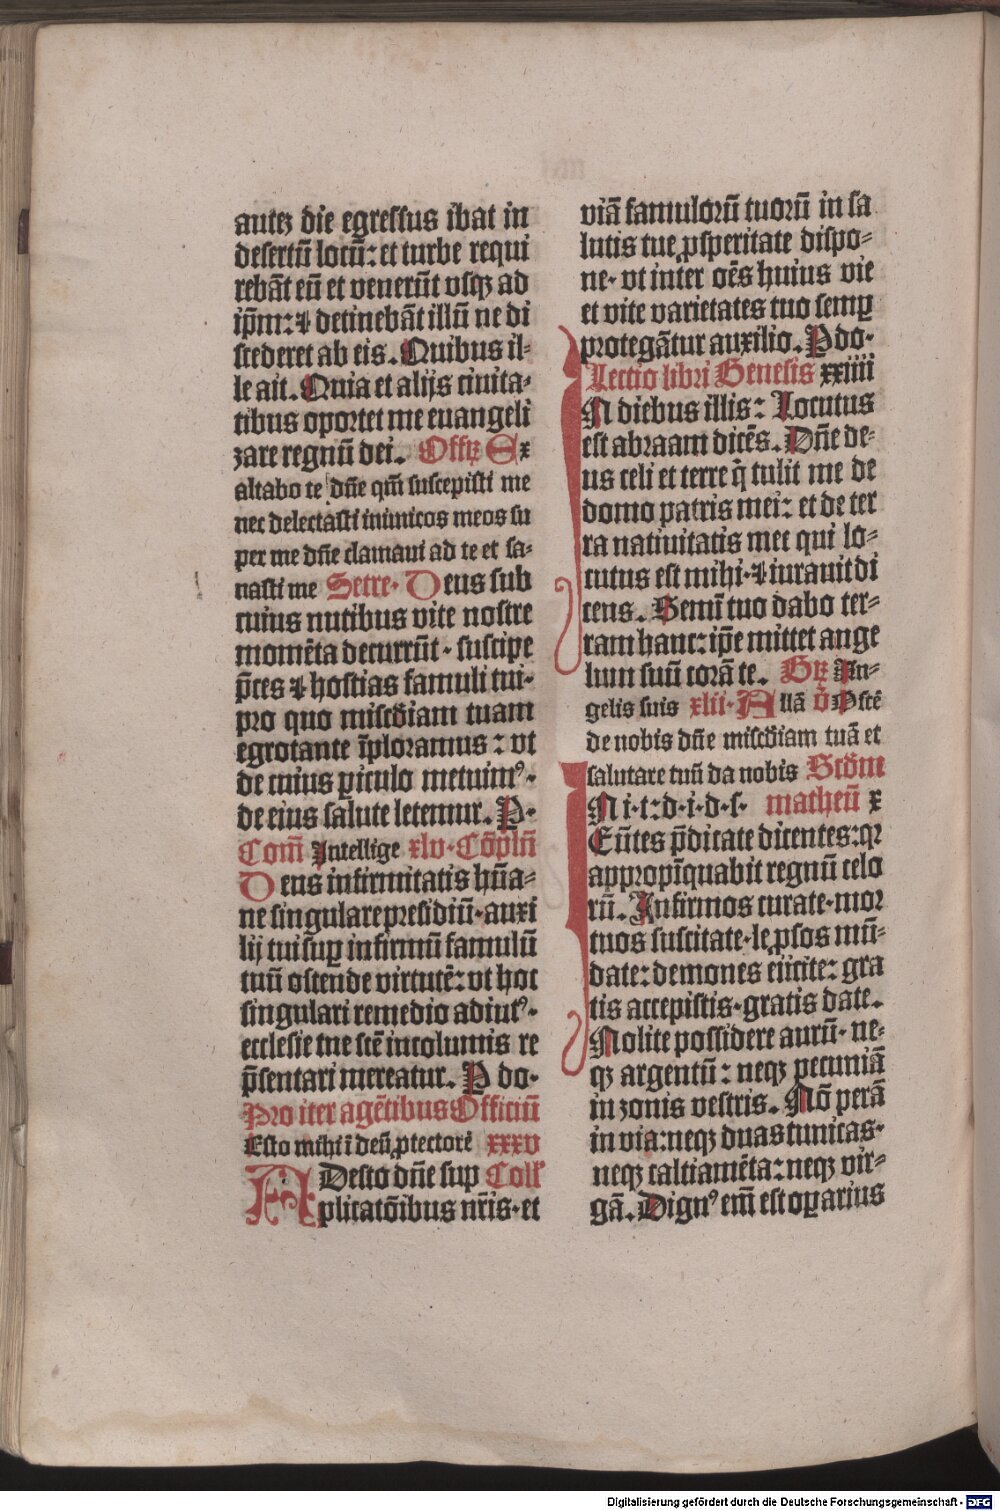 autez die egressus ibat in
desertū locū: et turbe requi
rebāt eū et venerūt vsqꝫ ad
ip̄m: ⁊ detinebāt illū ne di
scederet ab eis. Quibus il⸗
le ait. Quia et alijs ciuita⸗
tibus oportet me euangeli
zare regnū dei. Offꝝ Ex
altabo te dn̄e qm̄ suscepisti me
nec delectasti inimicos meos su
per me dn̄e clamaui ad te et sa⸗
nasti me Secre. Deus sub
cuius nutibus vite nostre
momēta decurrūt. suscipe
p̄ces ⁊ hostias famuli tui.
pro quo misc̄diam tuam
egrotante īploramus: vt
de cuius ꝑiculo metuimꝰ.
de eius salute letemur. P.
Com̄ Intellige xlv. Cōplū
Deus infirmitatis hūa⸗
ne singulare presidiū. auxi
lij tui suꝑ infirmū famulū
tuū ostende virtutē: vt hoc
singulari remedio adiutꝰ.
ecclesie tue scē incolumis re
p̄sentari mereatur. P do.
Pro iter agētibus Officiū
Esto mihi ī deū ꝓtectorē xxxv
Adesto dn̄e sup Coll'
plicatōibus nr̄is. et
viā famulorū tuorū in sa
lutis tue ꝓsperitate dispo⸗
ne. vt inter oēs huius vie
et vite varietates tuo semꝑ
protegātur auxilio. P do.
Lectio libri Genesis xxiiii
IN diebus illis: Locutus
est abraam dicēs. Dn̄e de⸗
us celi et terre q̄ tulit me de
domo patris mei: et de ter
ra natiuitatis mee qui lo⸗
cutus est mihi. ⁊ iurauit di
cens. Semī tuo dabo ter⸗
ram hanc: ip̄e mittet ange
lum suū corā te. Gꝝ An⸗
gelis suis xlii. Allā ō Pstē
de nobis dn̄e misc̄diam tuā et
salutare tuū da nobis Scd̄m
IN i. t: d. i. d. s. matheū x
Eūtes p̄dicate dicentes: qꝛ
appropīquabit regnū celo
rū. Infirmos curate. mor
tuos suscitate. leꝓsos mū⸗
date: demones eijcite: gra
tis accepistis. gratis date.
Nolite possidere aurū. ne⸗
qꝫ argentū: neqꝫ pecuniā
in zonis vestris. Nō perā
in via: neqꝫ duas tunicas.
neqꝫ calciamēta: neqꝫ vir⸗
gā. Dignꝰ em̄ est oꝑarius
Digitalisierung gefördert durch die Deutsche Forschungsgemeinschaft - DFG